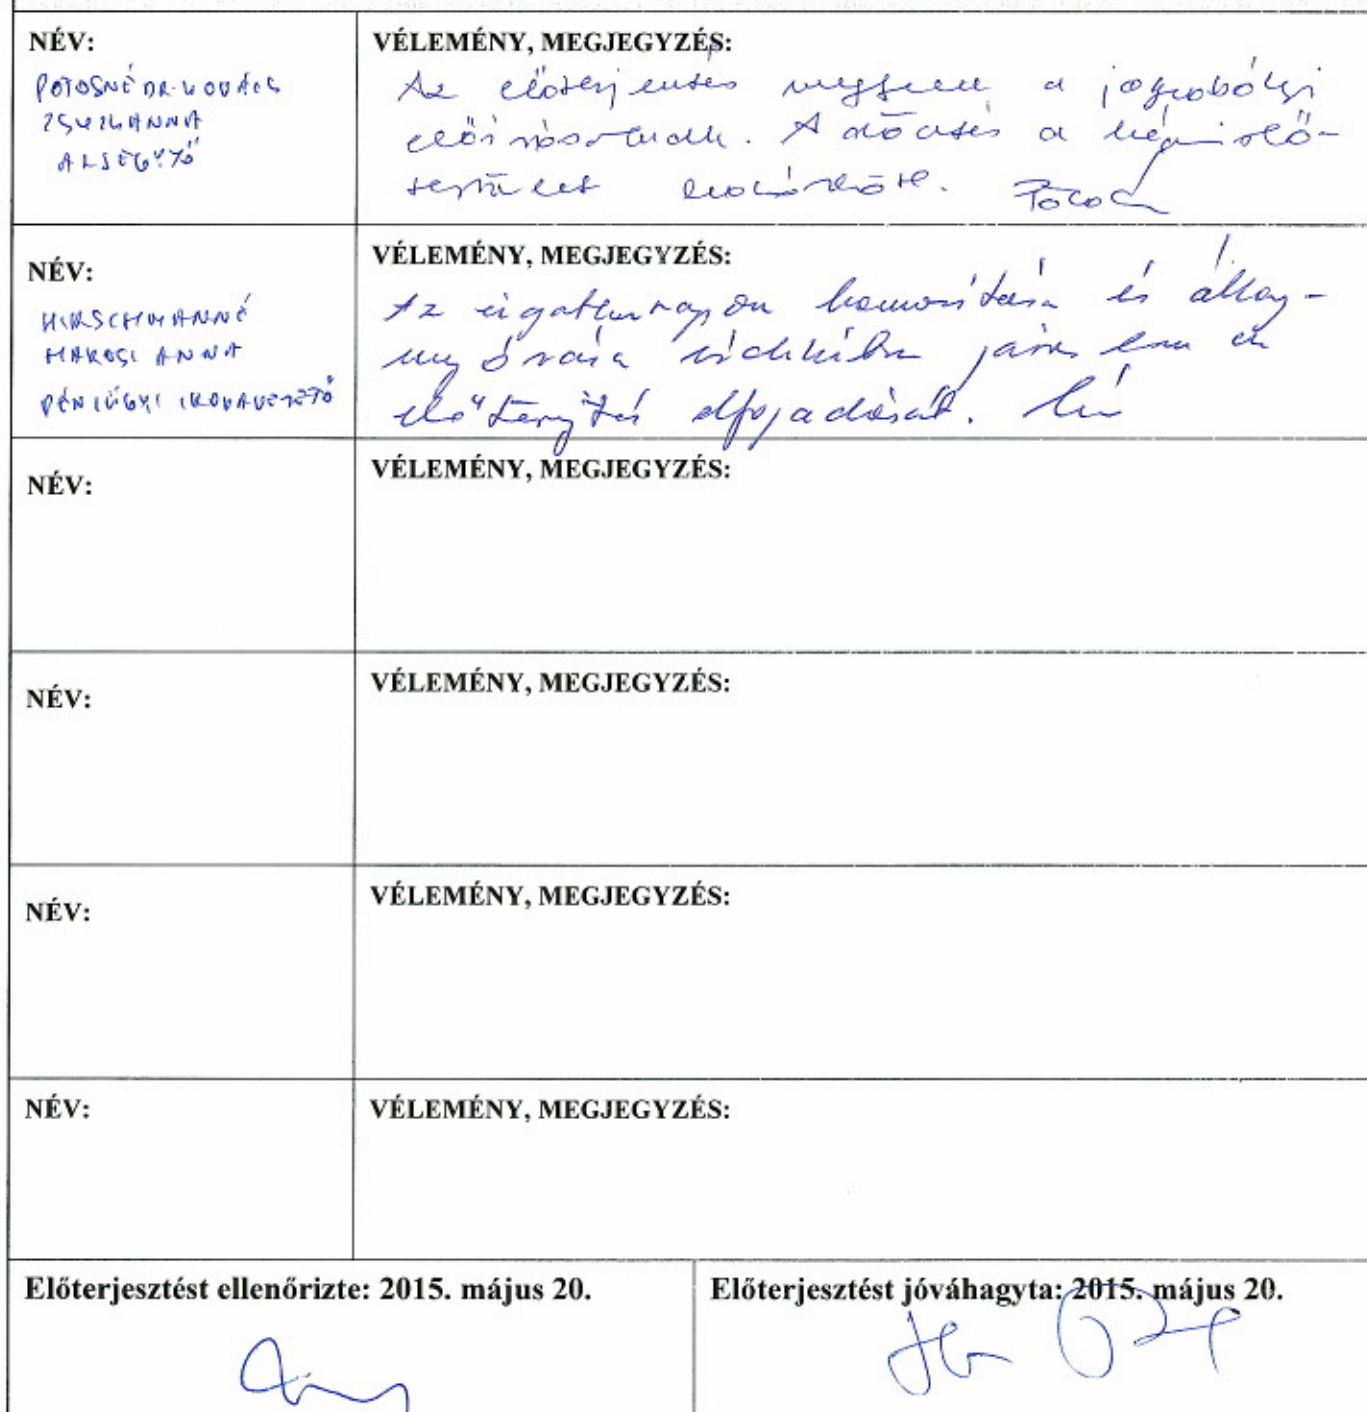 NÉV:
POTOSNÉ DR. KOVÁCS
ZSUZSANNA
ALJEGYZŐ
VÉLEMÉNY, MEGJEGYZÉS:
Az előterjesztés megfelel a jogszabályi
előírásoknak. A döntés a képviselő-
testület
NÉV:
HIRSCHMANNÉ
MAROSI ANNA
PÉNZÜGYI IRODAVEZETŐ
VÉLEMÉNY, MEGJEGYZÉS:
Az ingatlanvagyon és állag-
megóvása érdekében
előterjesztés elfogadását.
NÉV:
VÉLEMÉNY, MEGJEGYZÉS:
NÉV:
VÉLEMÉNY, MEGJEGYZÉS:
NÉV:
VÉLEMÉNY, MEGJEGYZÉS:
NÉV:
VÉLEMÉNY, MEGJEGYZÉS:
Előterjesztést ellenőrizte: 2015. május 20.
Előterjesztést jóváhagyta: 2015. május 20.